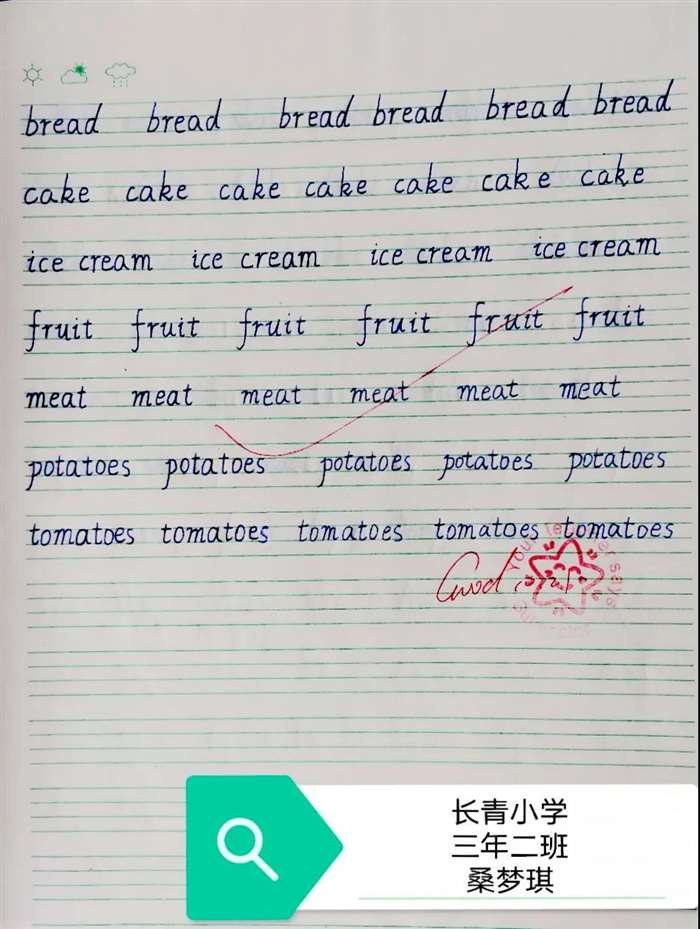 bread bread bread bread bread bread
cake cake cake cake cake cake cake
ice cream ice cream ice cream ice cream
fruit fruit fruit fruit fruit fruit
meat meat meat meat meat meat
potatoes potatoes potatoes potatoes potatoes
tomatoes tomatoes tomatoes tomatoes tomatoes
Good
Your teacher says
长青小学
三年二班
桑梦琪